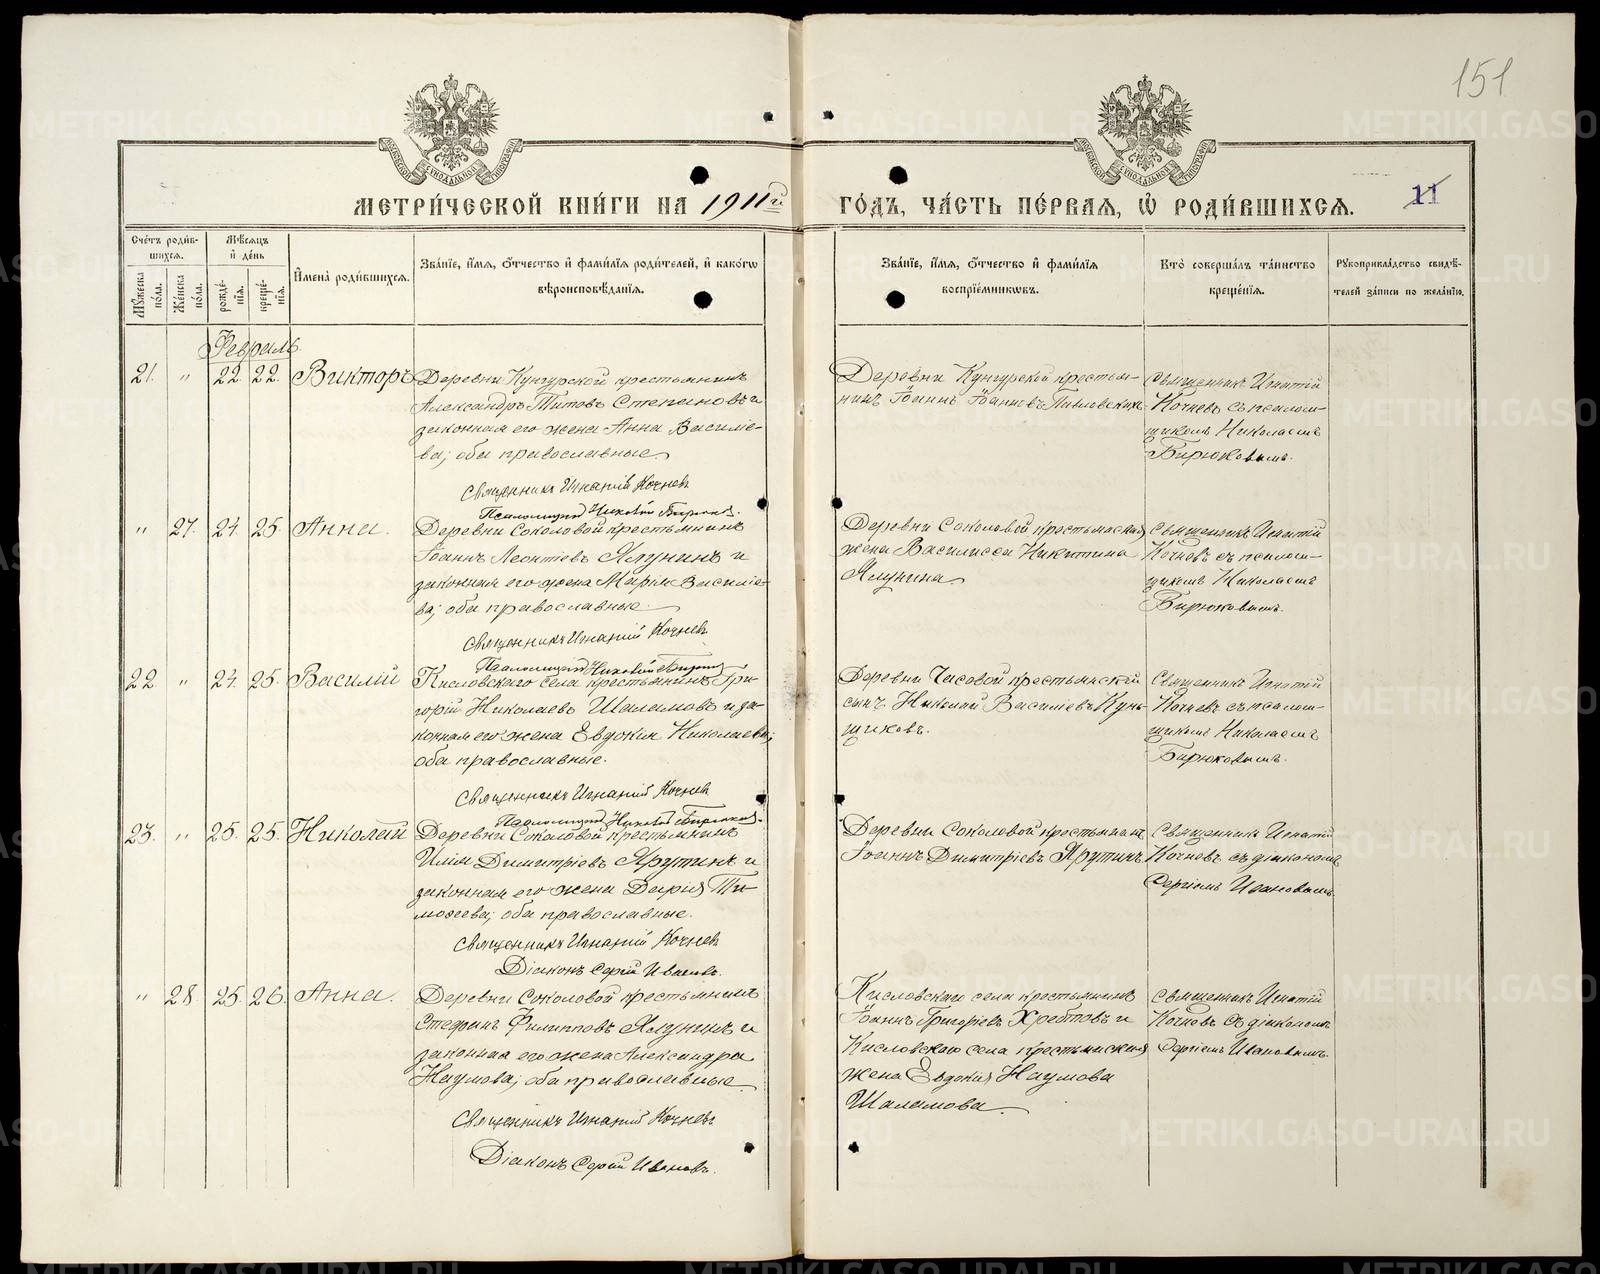 151
МЕТРИ́ЧЕСКОЙ КНИ́ГИ НА 1911й ГО́ДЪ, ЧА́СТЬ ПЕ́РВАЯ, Ѡ РОДИ́ВШИХСЯ.
11
Сче́тъ роди́в-
шихся.
Му́жеска по́ла.
Же́нска по́ла.
Мѣ́сяцъ
и де́нь
рожде́-
нія.
креще́-
нія.
Имена̀ роди́вшихся.
Зва́ніе, и́мя, о́тчество и фами́лія роди́телей, и како́гѡ
вѣроисповѣ́данія.
Зва́ніе, и́мя, о́тчество и фами́лія
воспріе́мниковъ.
Кто̀ соверша́лъ та́инство
креще́нія.
Рукоприкла́дство свидѣ́-
телей за́писи по жела́нію.
Февраль.
21. " 22. 22. Викторъ
Деревни Кунгурской крестьянинъ
Александръ Титовъ Степановъ и
законная его жена Анна Василіе-
ва; оба православные.
Священникъ Игнатій Кочневъ
Псаломщикъ Николай Бирюков.
Деревни Кунгурской крестья-
нинъ Іоаннъ Іоанновъ Павловскихъ
Священникъ Игнатій
Кочневъ съ псалом-
щикомъ Николаемъ
Бирюковымъ.
" 27. 24. 25. Анна.
Деревни Соколовой крестьянинъ
Іоаннъ Леонтіевъ Ялунинъ и
законная его жена Марія Василіе-
ва; оба православные.
Священникъ Игнатій Кочневъ
Псаломщикъ Николай Бирюков
Деревни Соколовой крестьянская
жена Василисса Никитина
Ялунина
Священникъ Игнатій
Кочневъ съ псалом-
щикомъ Николаемъ
Бирюковымъ.
22. " 24. 25. Василій
Кисловскаго села крестьянинъ Гри-
горій Николаевъ Шаламовъ и за-
конная его жена Евдокія Николаева;
оба православные.
Священникъ Игнатій Кочневъ
Псаломщикъ Николай Бирюков.
Деревни Часовой крестьянскій
сынъ Николай Василіевъ Кунь-
щиковъ.
Священникъ Игнатій
Кочневъ съ псалом-
щикомъ Николаемъ
Бирюковымъ.
23. " 25. 25. Николай
Деревни Соколовой крестьянинъ
Илія Димитріевъ Ярутинъ и
законная его жена Дарія Ти-
моѳеева; оба православные.
Священникъ Игнатій Кочневъ
Діаконъ Сергій Ивановъ.
Деревни Соколовой крестьянинъ
Іоаннъ Димитріевъ Ярутинъ
Священникъ Игнатій
Кочневъ съ діакономъ
Сергіемъ Ивановымъ.
" 28. 25. 26. Анна.
Деревни Соколовой крестьянинъ
Стефанъ Филипповъ Ялунинъ и
законная его жена Александра
Наумова; оба православные
Священникъ Игнатій Кочневъ
Діаконъ Сергій Ивановъ.
Кисловскаго села крестьянинъ
Іоаннъ Григоріевъ Хребтовъ и
Кисловскаго села крестьянская
жена Евдокія Наумова
Шаламова.
Священникъ Игнатій
Кочневъ съ діакономъ
Сергіемъ Ивановымъ.
METRIKI.GASO-URAL.RU